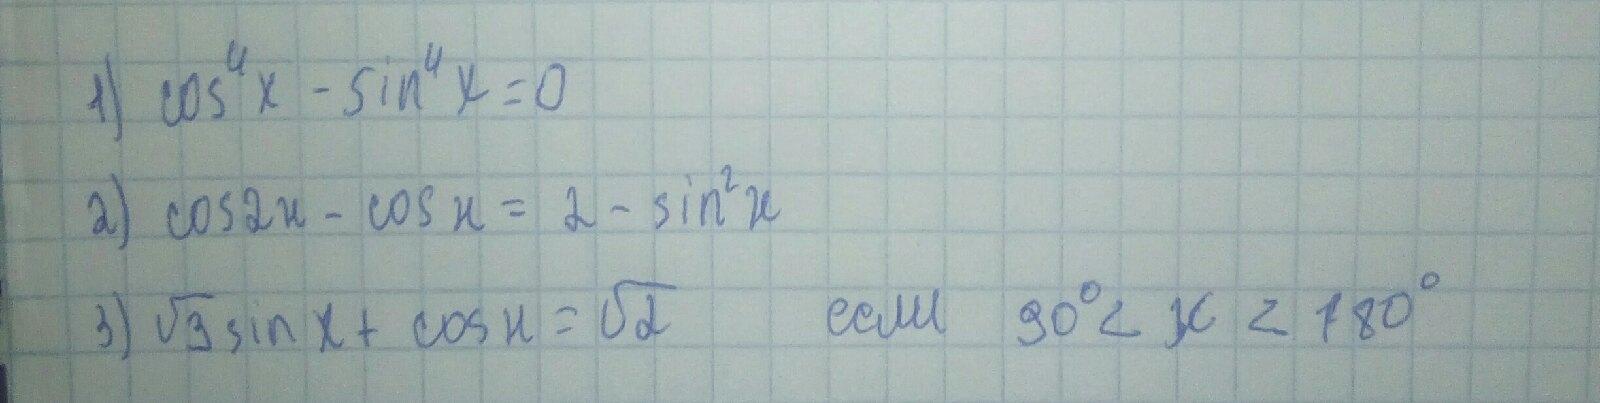 1) cos⁴x - sin⁴x = 0
2) cos2x - cosx = 2 - sin²x
3) √3sinx + cosx = √2 если 90° < x < 180°